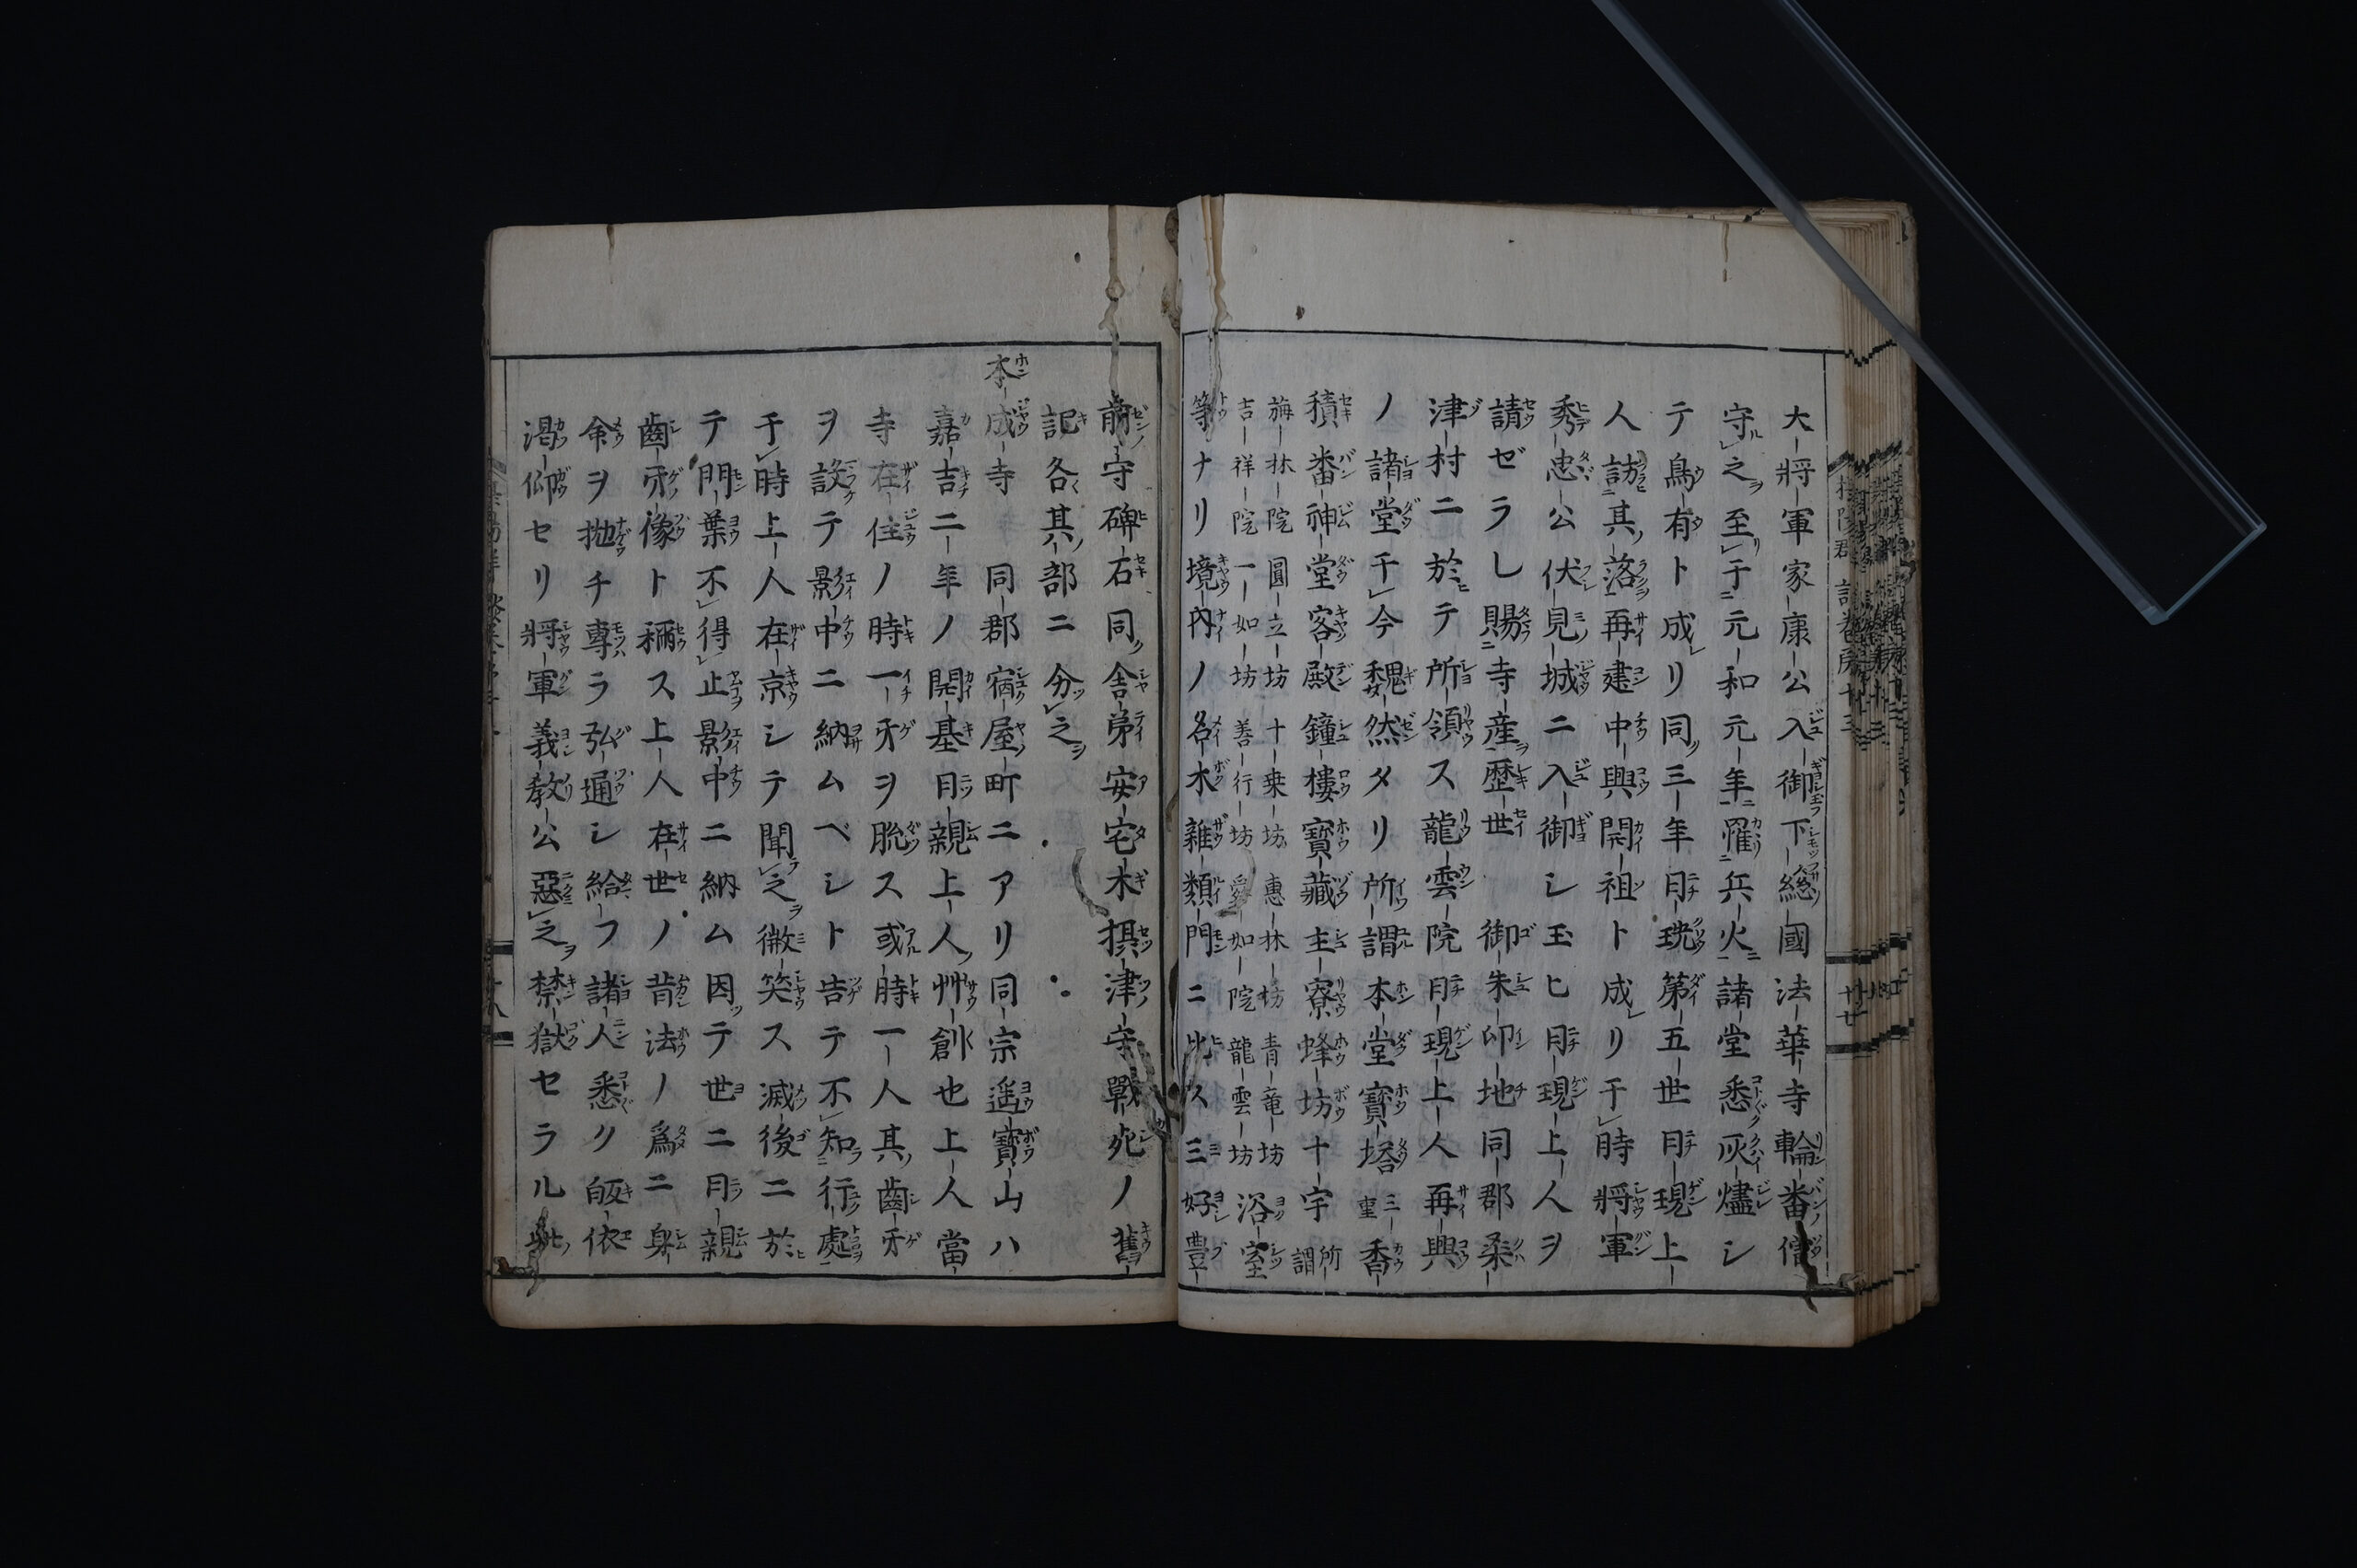 大將軍家康公入御下総國法華寺輪番僧
守之至于元和元年罹兵火諸堂悉灰燼シ
テ烏有ト成リ同三年日珖第五世日現上
人訪其落再建中興開祖ト成リ于時將軍
秀忠公伏見城ニ入御シ玉ヒ日現上人ヲ
請ゼラレ賜寺産歴世 御朱印地同郡桑
津村ニ於テ所領ス龍雲院日現上人再興
ノ諸堂于今巍然タリ所謂本堂寶塔三重香
積番神堂客殿鐘樓寶藏主寮蜂坊十宇所謂
旃林院 圓立坊 十乗坊 惠林坊 青竜坊
吉祥院 一如坊 善行坊 如院 龍雲坊 浴室
等ナリ境内ノ名木雜類門ニ比ス三好豊
前守碑石同舎弟安宅木摂津守戰死ノ舊
記各其部ニ分之
本成寺 同郡宿屋町ニアリ同宗遥寶山ハ
嘉吉二年ノ開基日親上人艸創也上人當
寺在住ノ時一牙ヲ脱ス或時一人其齒牙
ヲ設テ影中ニ納ムベシト告テ不知行處
于時上人在京シテ聞之微笑ス滅後ニ於
テ門葉不得止影中ニ納ム因テ世ニ日親
齒牙像ト稱ス上人在世ノ昔法ノ爲ニ身
命ヲ抛チ専ラ弘通シ給フ諸人悉ク皈依
渇仰セリ將軍義教公惡之禁獄セラル此